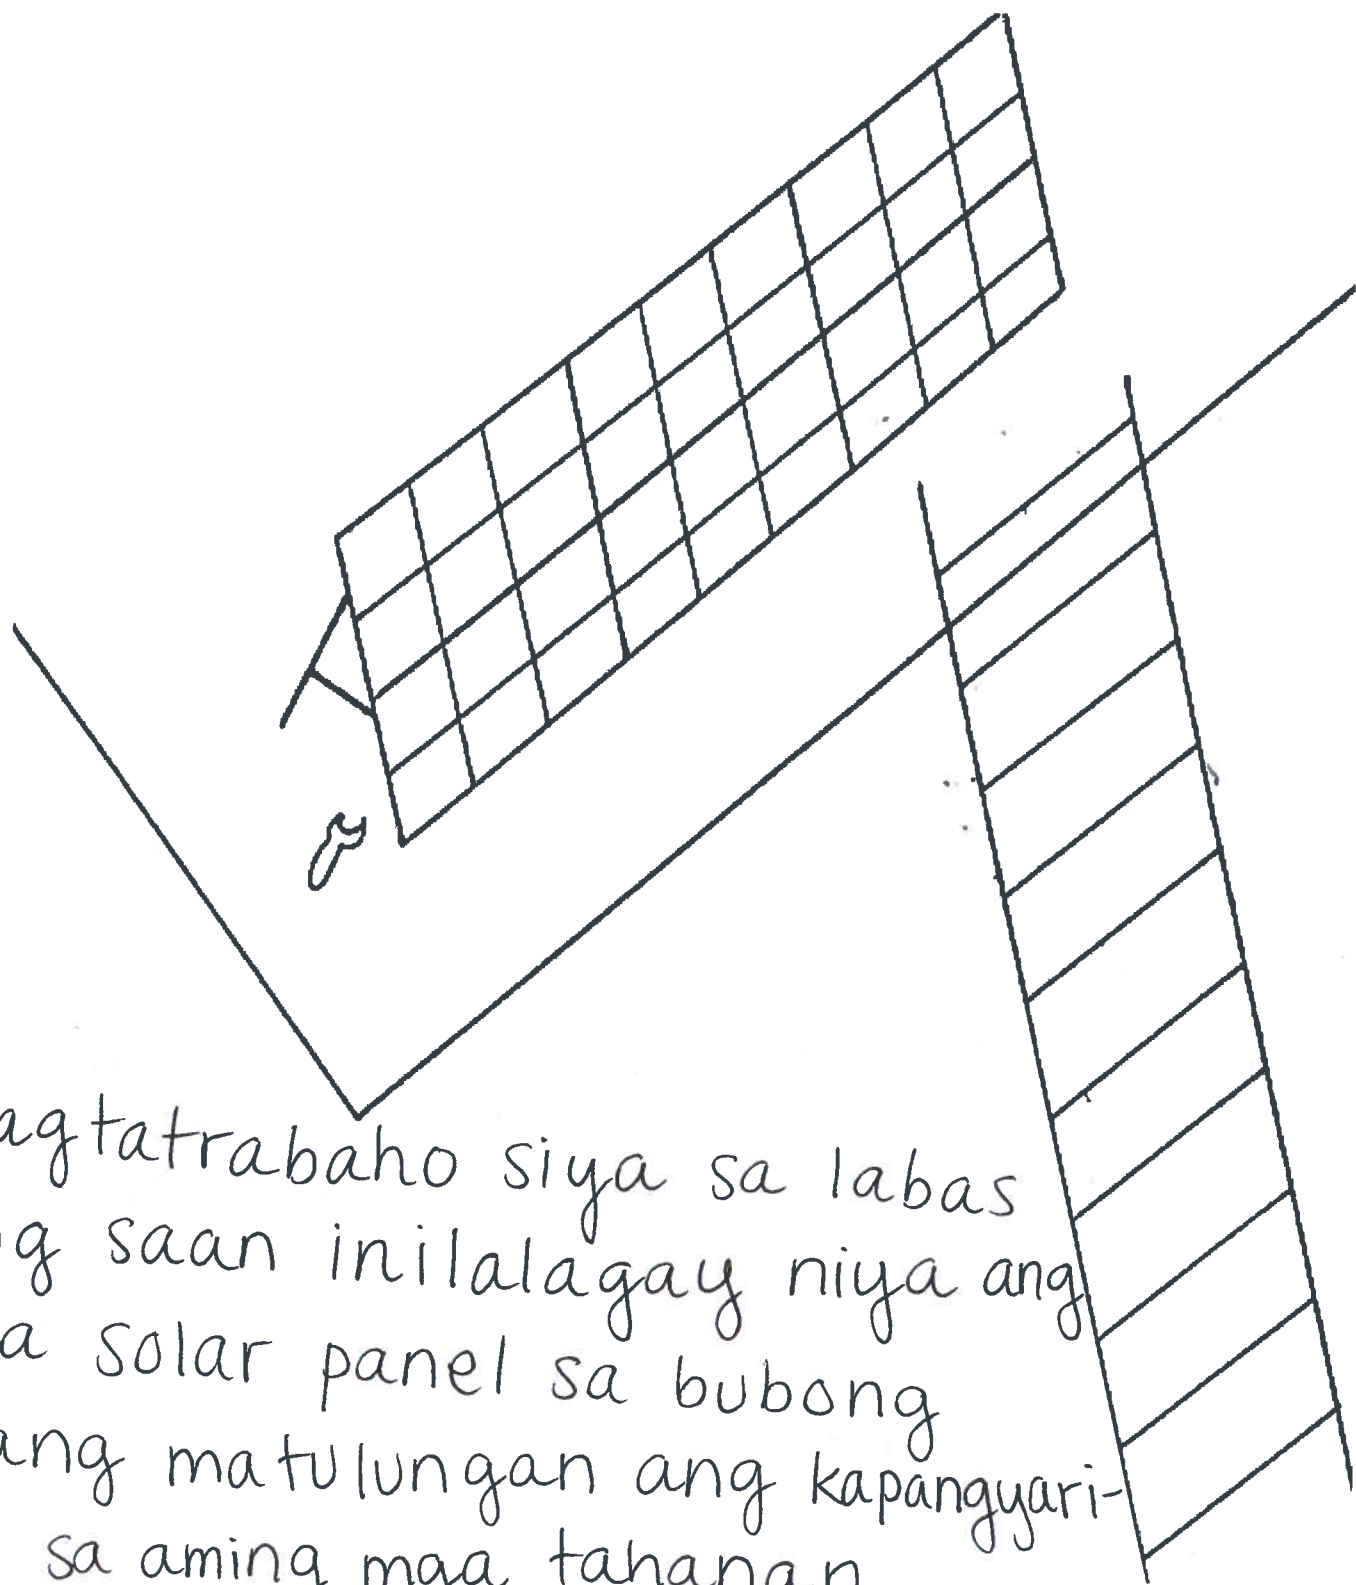 agtatrabaho siya sa labas
g saan inilalagay niya ang
a solar panel sa bubong
ang matulungan ang kapangyari-
sa aming mga tahanan